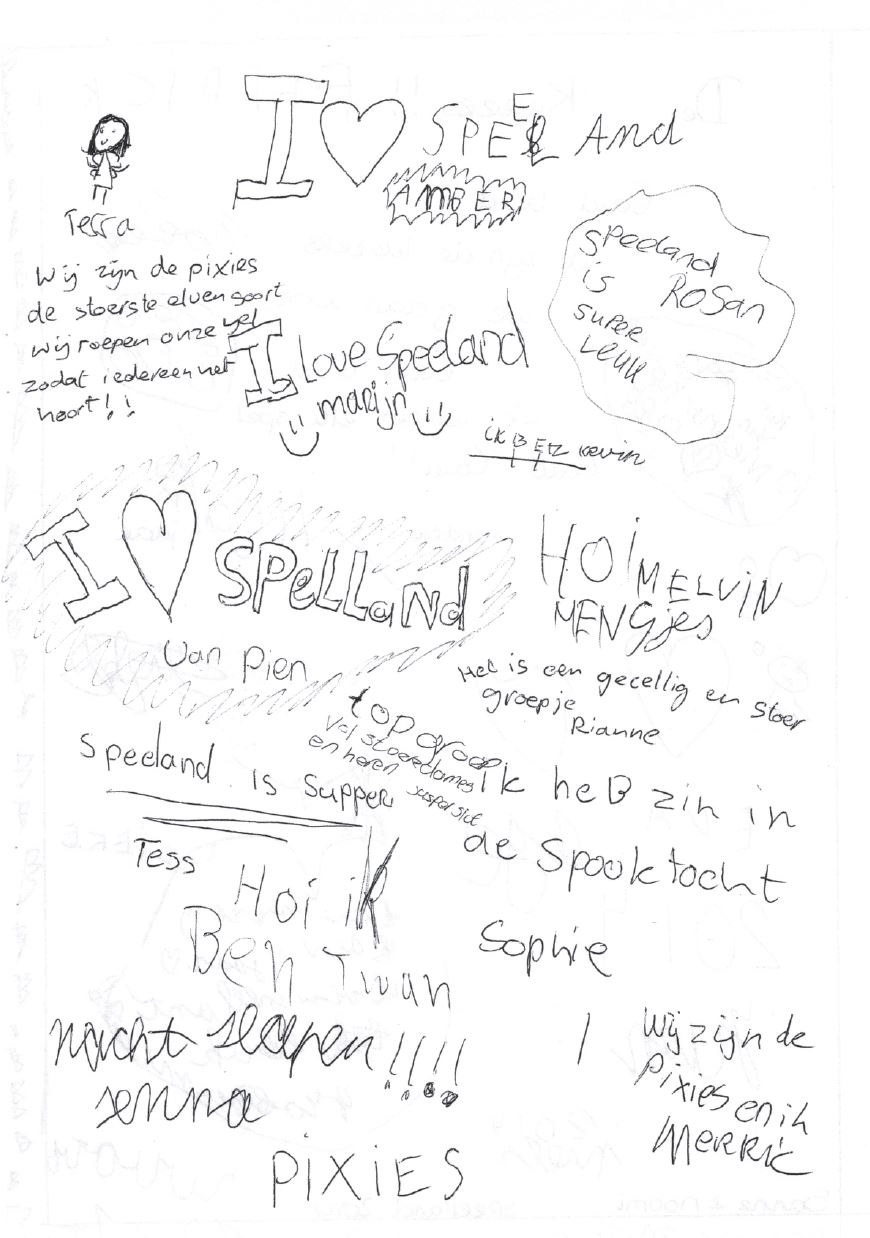 I ♡ SPEEL And
AMBER
Terra
Wij zijn de pixies
de stoerste elven soort
wij roepen onze yel
zodat iedereen het
hoort!!
I Love Speeland
marijn
Speeland
is ROSan
super
Leuk
ik B Kevin
I ♡ SPeLLaNd
Van Pien
HOi MELVIN
MENGjes
Het is een gecellig en stoer
groepje
Rianne
top groep
vol stoere dames
en heren
Speeland is Supper
Tess
ik heB zin in
de Spooktocht
Sophie
Hoi ik
Ben Twan
nacht slapen!!!!
senna
Wij zijn de
Pixies en ik
MERRIC
PiXiES